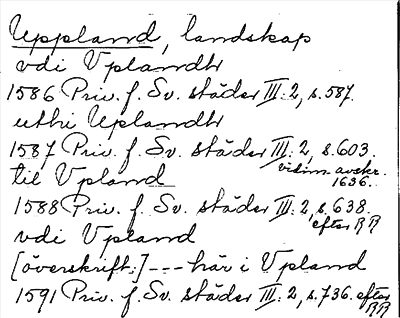 Uppland, landskap
vdi Vplandh
1586 Priv. f. Sv. städer III:2, s.587.
uthi Uplandh
1587 Priv. f. Sv. städer III:2, s.603.
vidim. avskr.
1636.
til Vpland
1588 Priv. f. Sv. städer III:2, s.638.
efter RR
vdi Vpland
[överskrift:] --- här i Vpland
1591 Priv. f. Sv. städer III:2, s.736. efter
RR